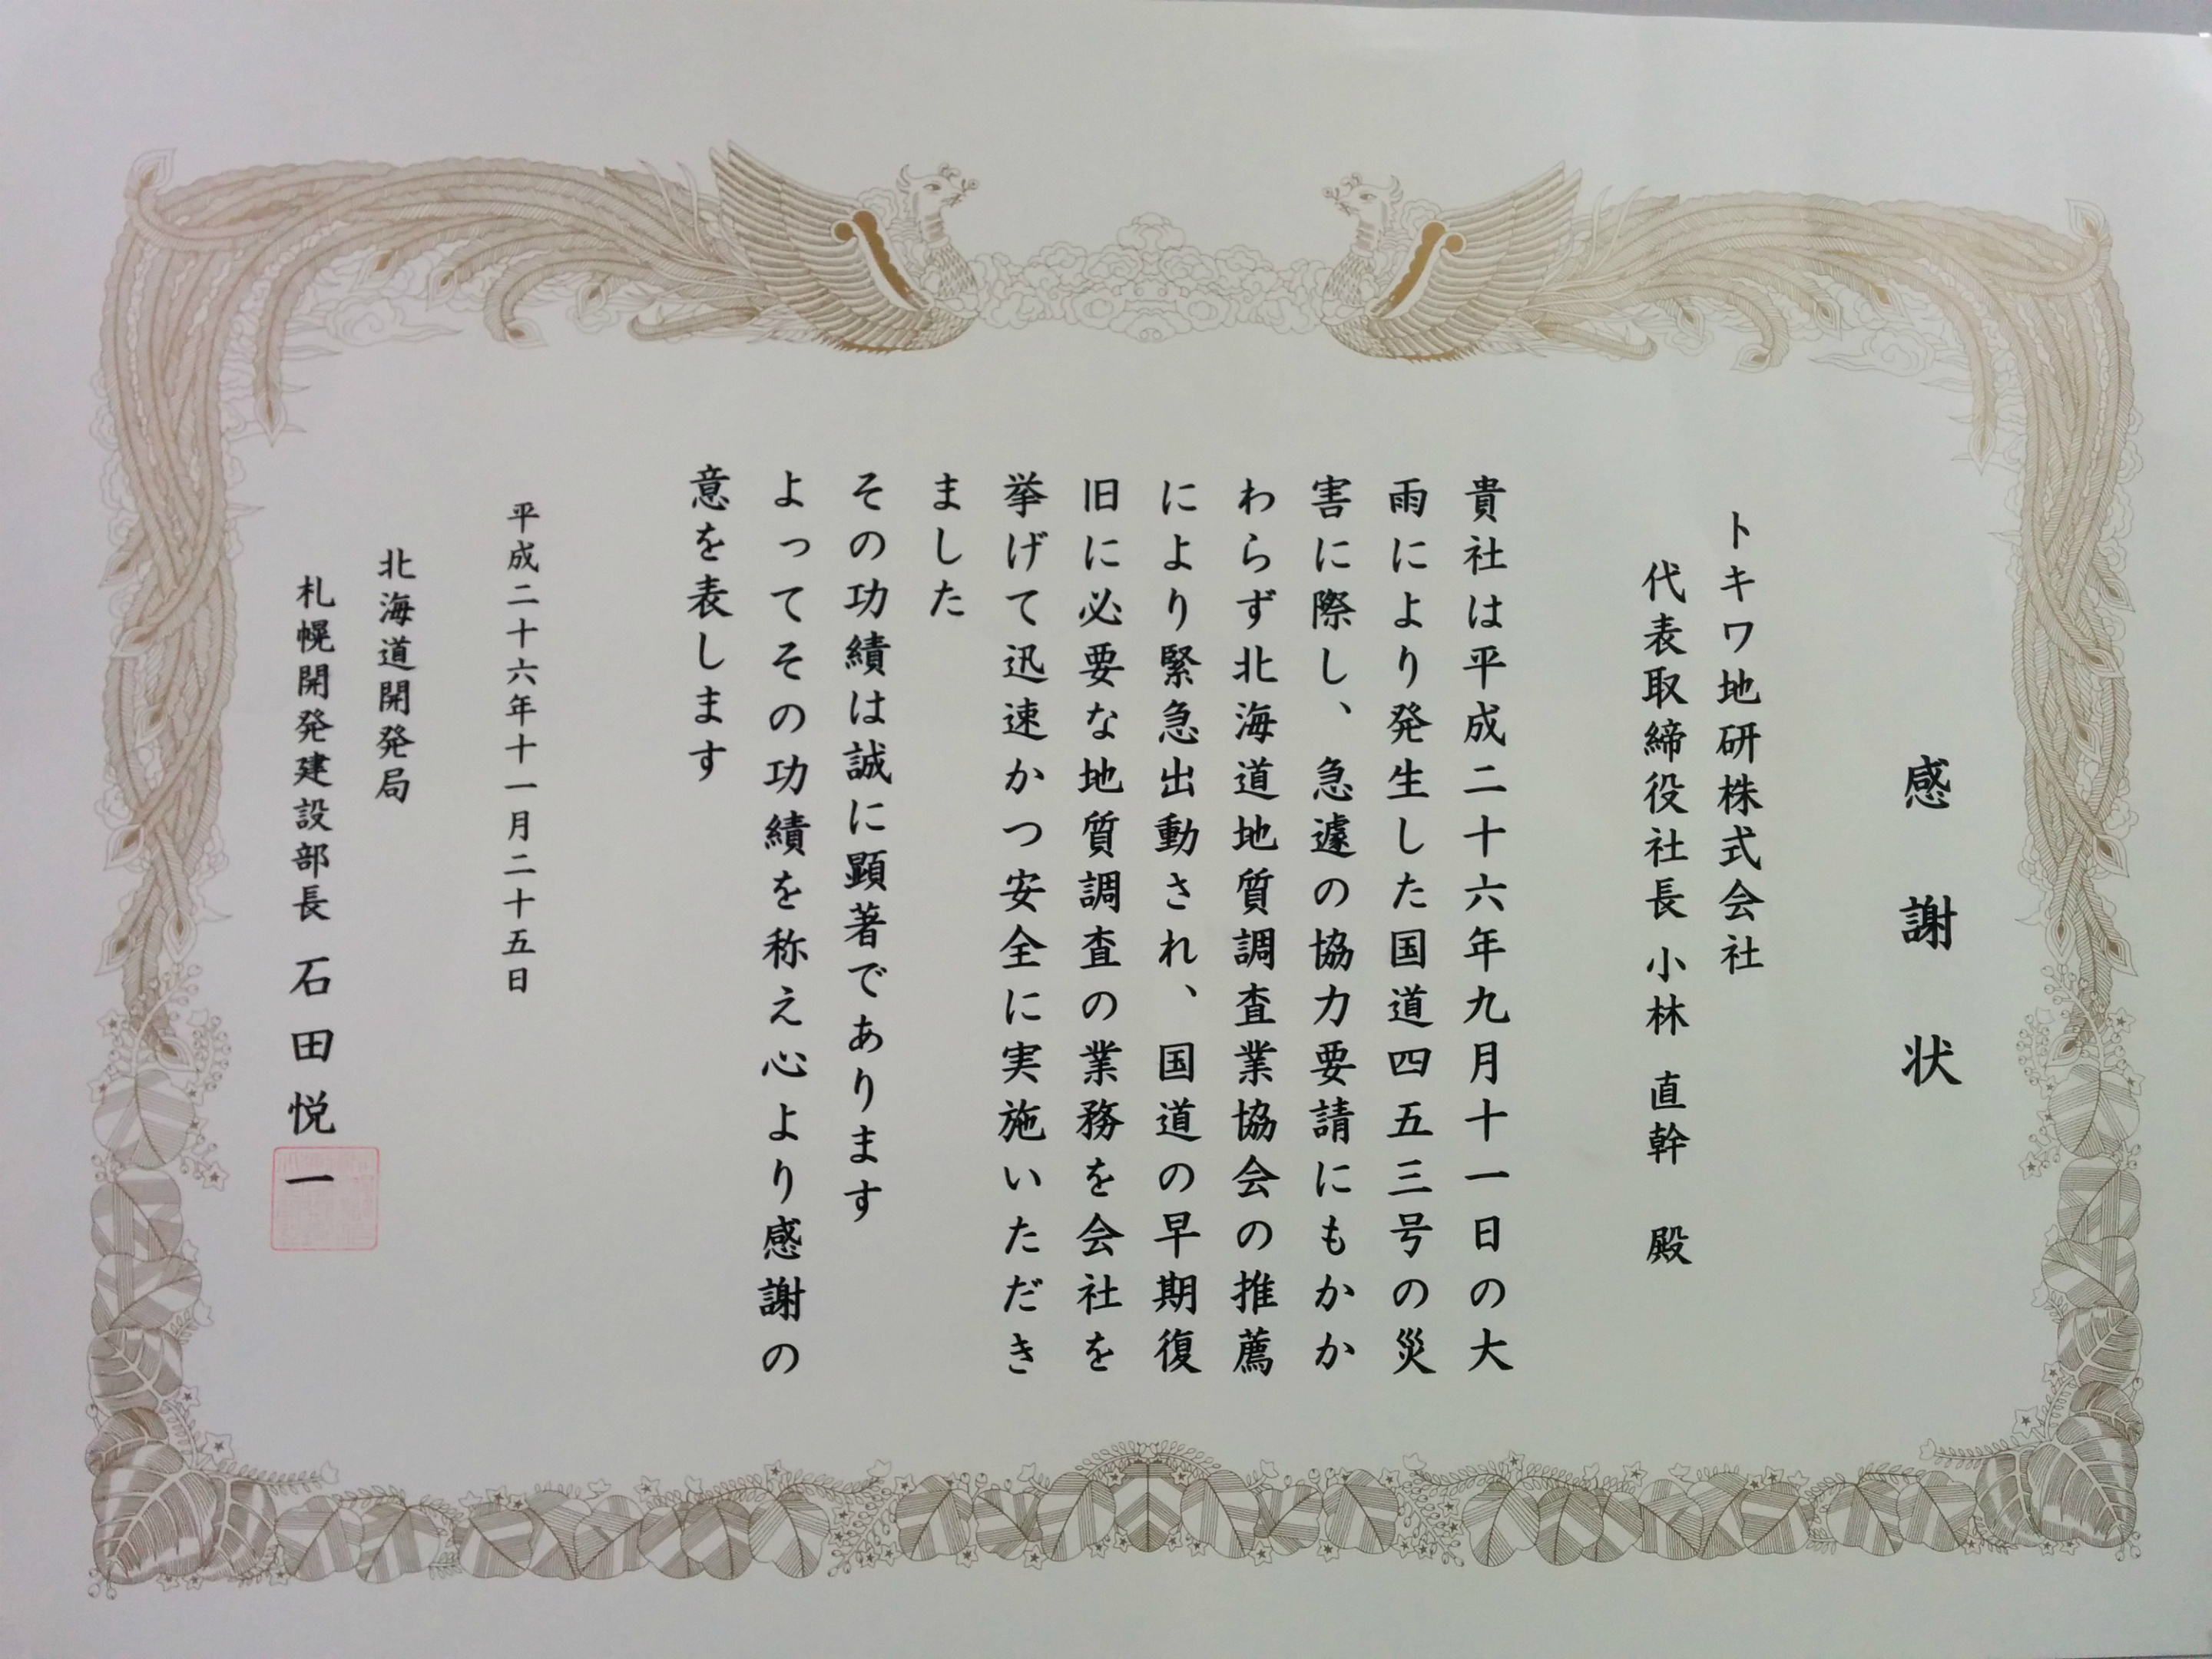 感謝状
トキワ地研株式会社
代表取締役社長 小林 直幹 殿
貴社は平成二十六年九月十一日の大
雨により発生した国道四五三号の災
害に際し、急遽の協力要請にもかか
わらず北海道地質調査業協会の推薦
により緊急出動され、国道の早期復
旧に必要な地質調査の業務を会社を
挙げて迅速かつ安全に実施いただき
ました
その功績は誠に顕著であります
よってその功績を称え心より感謝の
意を表します
平成二十六年十一月二十五日
北海道開発局
札幌開発建設部長 石田悦一